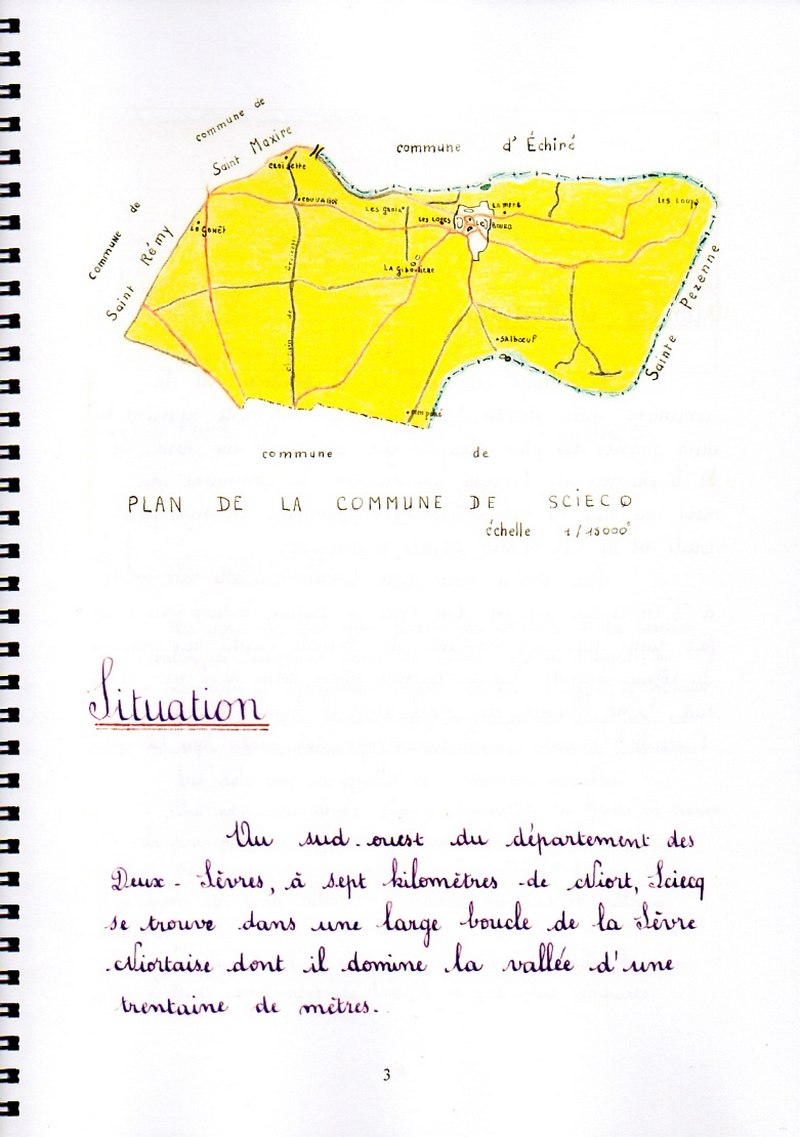 commune de
Saint Maxire
commune d'Échiré
commune de
Saint Rémy
CROISETTE
LES LOUPS
LES LOGES
LE BOURG
LA GIBOULIERE
Sainte Pezenne
SALBOEUF
commune de
PLAN DE LA COMMUNE DE SCIECQ
échelle 1/15000e
Situation
Au sud-ouest du département des
Deux-Sèvres, à sept kilomètres de Niort, Sciecq
se trouve dans une large boucle de la Sèvre
Niortaise dont il domine la vallée d'une
trentaine de mètres.
3